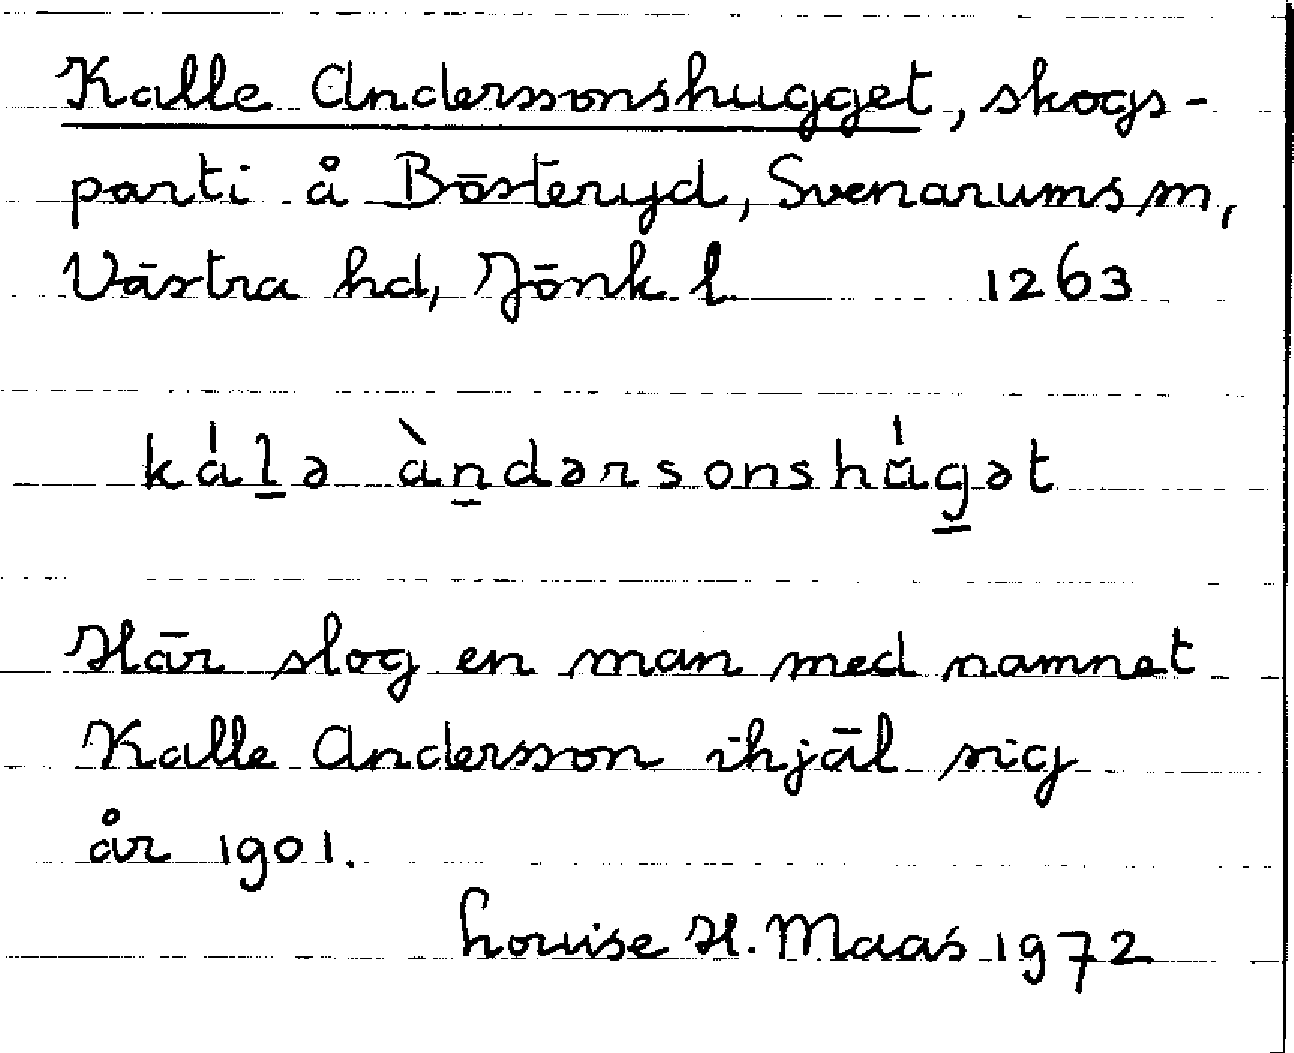 Kalle Anderssonshugget, skogs-
parti å Bösteryd, Svenarums sn,
Västra hd, Jönk. l. 1263
ká̍l̲ə àn̲dərsonshå̍g̲ət
Här slog en man med namnet
Kalle Andersson ihjäl sig
år 1901.
Louise H. Maas 1972